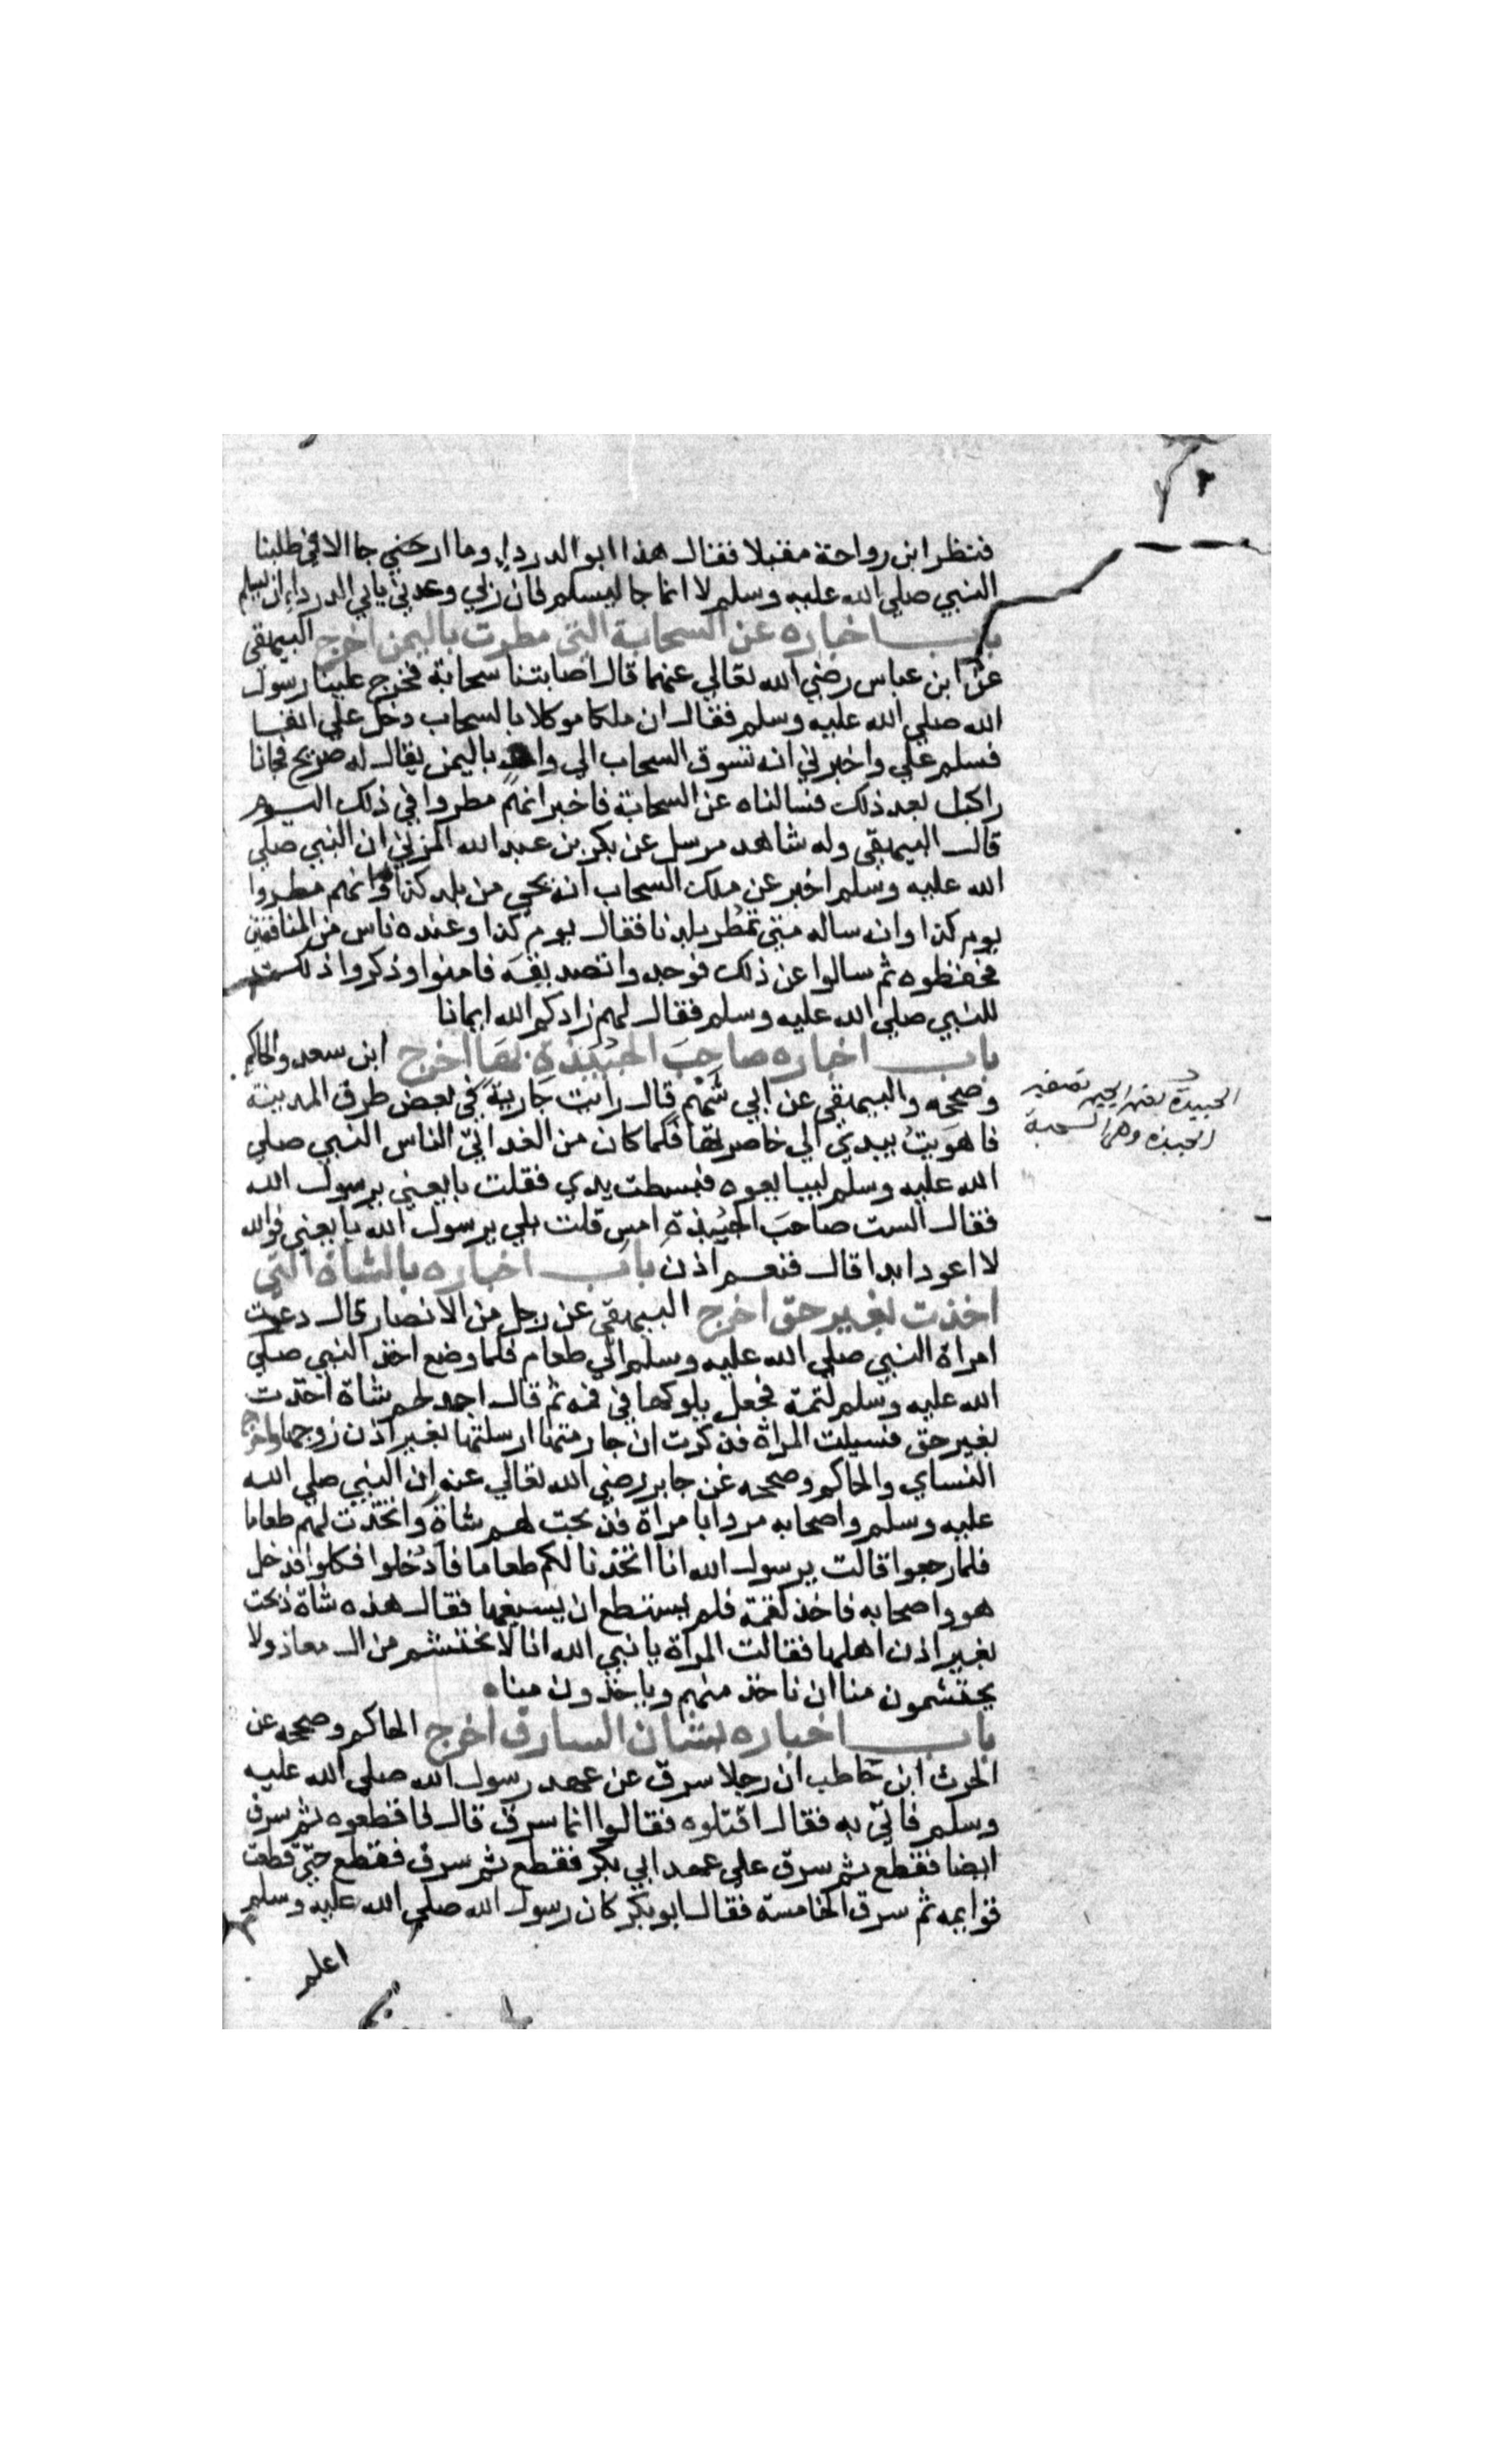 فنظر ابن رواحة مقبلا فقال هذا ابو الدرداء وما ارحني جا الا في طلبنا
النبي صلي الله عليه وسلم لا انما جا ليسلم فان ربي وعدني بابي الدرداء ان يسلم
باب اخباره عن السحابة التي مطرت باليمن اخرج البيهقي
عن ابن عباس رضي الله تعالي عنهما قال اصابتنا سحابة فخرج علينا رسول
الله صلي الله عليه وسلم فقال ان ملكا موكلا بالسحاب دخل علي انفا
فسلم علي واخبرني انه تسوق السحاب الي واد باليمن يقال له صريح فجانا
راكبل بعد ذلك فسالناه عن السحابة فاخبر انهم مطروا في ذلك اليوم
قال البيهقي وله شاهد مرسل عن بكر بن عبد الله المزني ان النبي صلي
الله عليه وسلم اخبر عن ملك السحاب انه يجي من بلد كذا وانهم مطروا
يوم كذا وانه ساله متي تمطر بلدنا فقال يوم كذا وعنده ناس من المنافقين
فحفظوه ثم سالوا عن ذلك فوجدوا تصديقه فامنوا وذكروا ذلك
للنبي صلي الله عليه وسلم فقال لهم زادكم الله ايمانا
باب اخباره صاحب الجبيذة بها اخرج ابن سعد والحاكم
وصححه والبيهقي عن ابي شهم قال رايت جارية في بعض طرق المدينة
فاهويت بيدي الي خاصرتها فلما كان من الغد اتي الناس النبي صلي
الله عليه وسلم ليبايعوه فبسطت يدي فقلت بايعني يرسول الله
فقال الست صاحب الجبيذة امس قلت بلي يرسول الله بايعني فوالله
لا اعود ابدا قال فنعم اذن باب اخباره بالشاة التي
اخذت بغير حق اخرج البيهقي عن رجل من الانصار قال دعت
امراة النبي صلي الله عليه وسلم الي طعام فلما وضع اخذ النبي صلي
الله عليه وسلم لقمة فجعل يلوكها في فمه ثم قال اجد لحم شاة اخذت
بغير حق فسيلت المراة فذكرت ان جارمتها ارسلتها بغير اذن زوجها واخرج
النساي والحاكم وصححه عن جابر رضي الله تعالي عنه ان النبي صلي الله
عليه وسلم واصحابه مروا بامراة فذبحت لهم شاة واتخذت لهم طعاما
فلما رجعوا قالت يرسول الله انا اتخذنا لكم طعاما فادخلوا فكلوا فدخل
هو واصحابه فاخذ لقمة فلم يستطع ان يسيغها فقال هذه شاة ذبحت
بغير اذن اهلها فقالت المراة يا نبي الله انا لا نحتشم من ال معاذ ولا
يحتشمون منا ان ناخذ منهم وياخذون منا
باب اخباره بشان السارق اخرج الحاكم وصححه عن
الحرث ابن حاطب ان رجلا سرق عن عهد رسول الله صلي الله عليه
وسلم فاتي به فقال اقتلوه فقالوا انما سرق قال فاقطعوه ثم سرق
ايضا فقطع ثم سرق علي عهد ابي بكر فقطع ثم سرق فقطع حتي قطعت
قوايمه ثم سرق الخامسة فقال ابو بكر كان رسول الله صلي الله عليه وسلم
اعلم
الجبيذة تصغير
الجبذة وهي